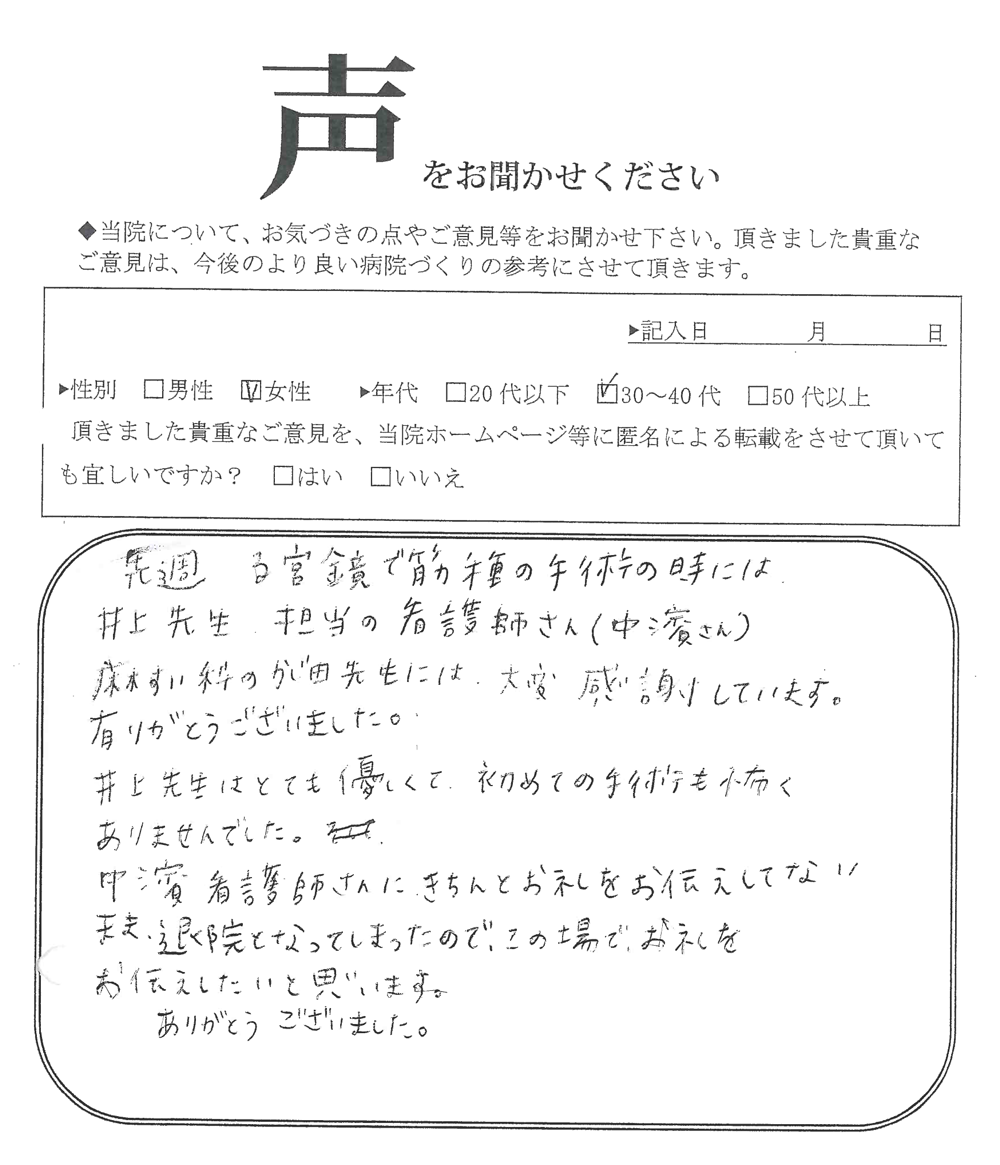 声をお聞かせください
◆当院について、お気づきの点やご意見等をお聞かせ下さい。頂きました貴重な
ご意見は、今後のより良い病院づくりの参考にさせて頂きます。
▶記入日　　　月　　　日
▶性別　□男性　☑女性　▶年代　□20代以下　☑30～40代　□50代以上
頂きました貴重なご意見を、当院ホームページ等に匿名による転載をさせて頂いて
も宜しいですか？　□はい　□いいえ
先週　宮鏡で筋種の手術の時には
井上先生、担当の看護師さん(中濱さん)
麻すい科のかじ田先生には、大変 感謝しています。
有りがとうございました。
井上先生はとても優しくて、初めての手術も怖く
ありませんでした。
中濱看護師さんに、きちんとお礼をお伝えしてない
まま、退院となってしまったので、この場で、お礼を
お伝えしたいと思います。
ありがとうございました。